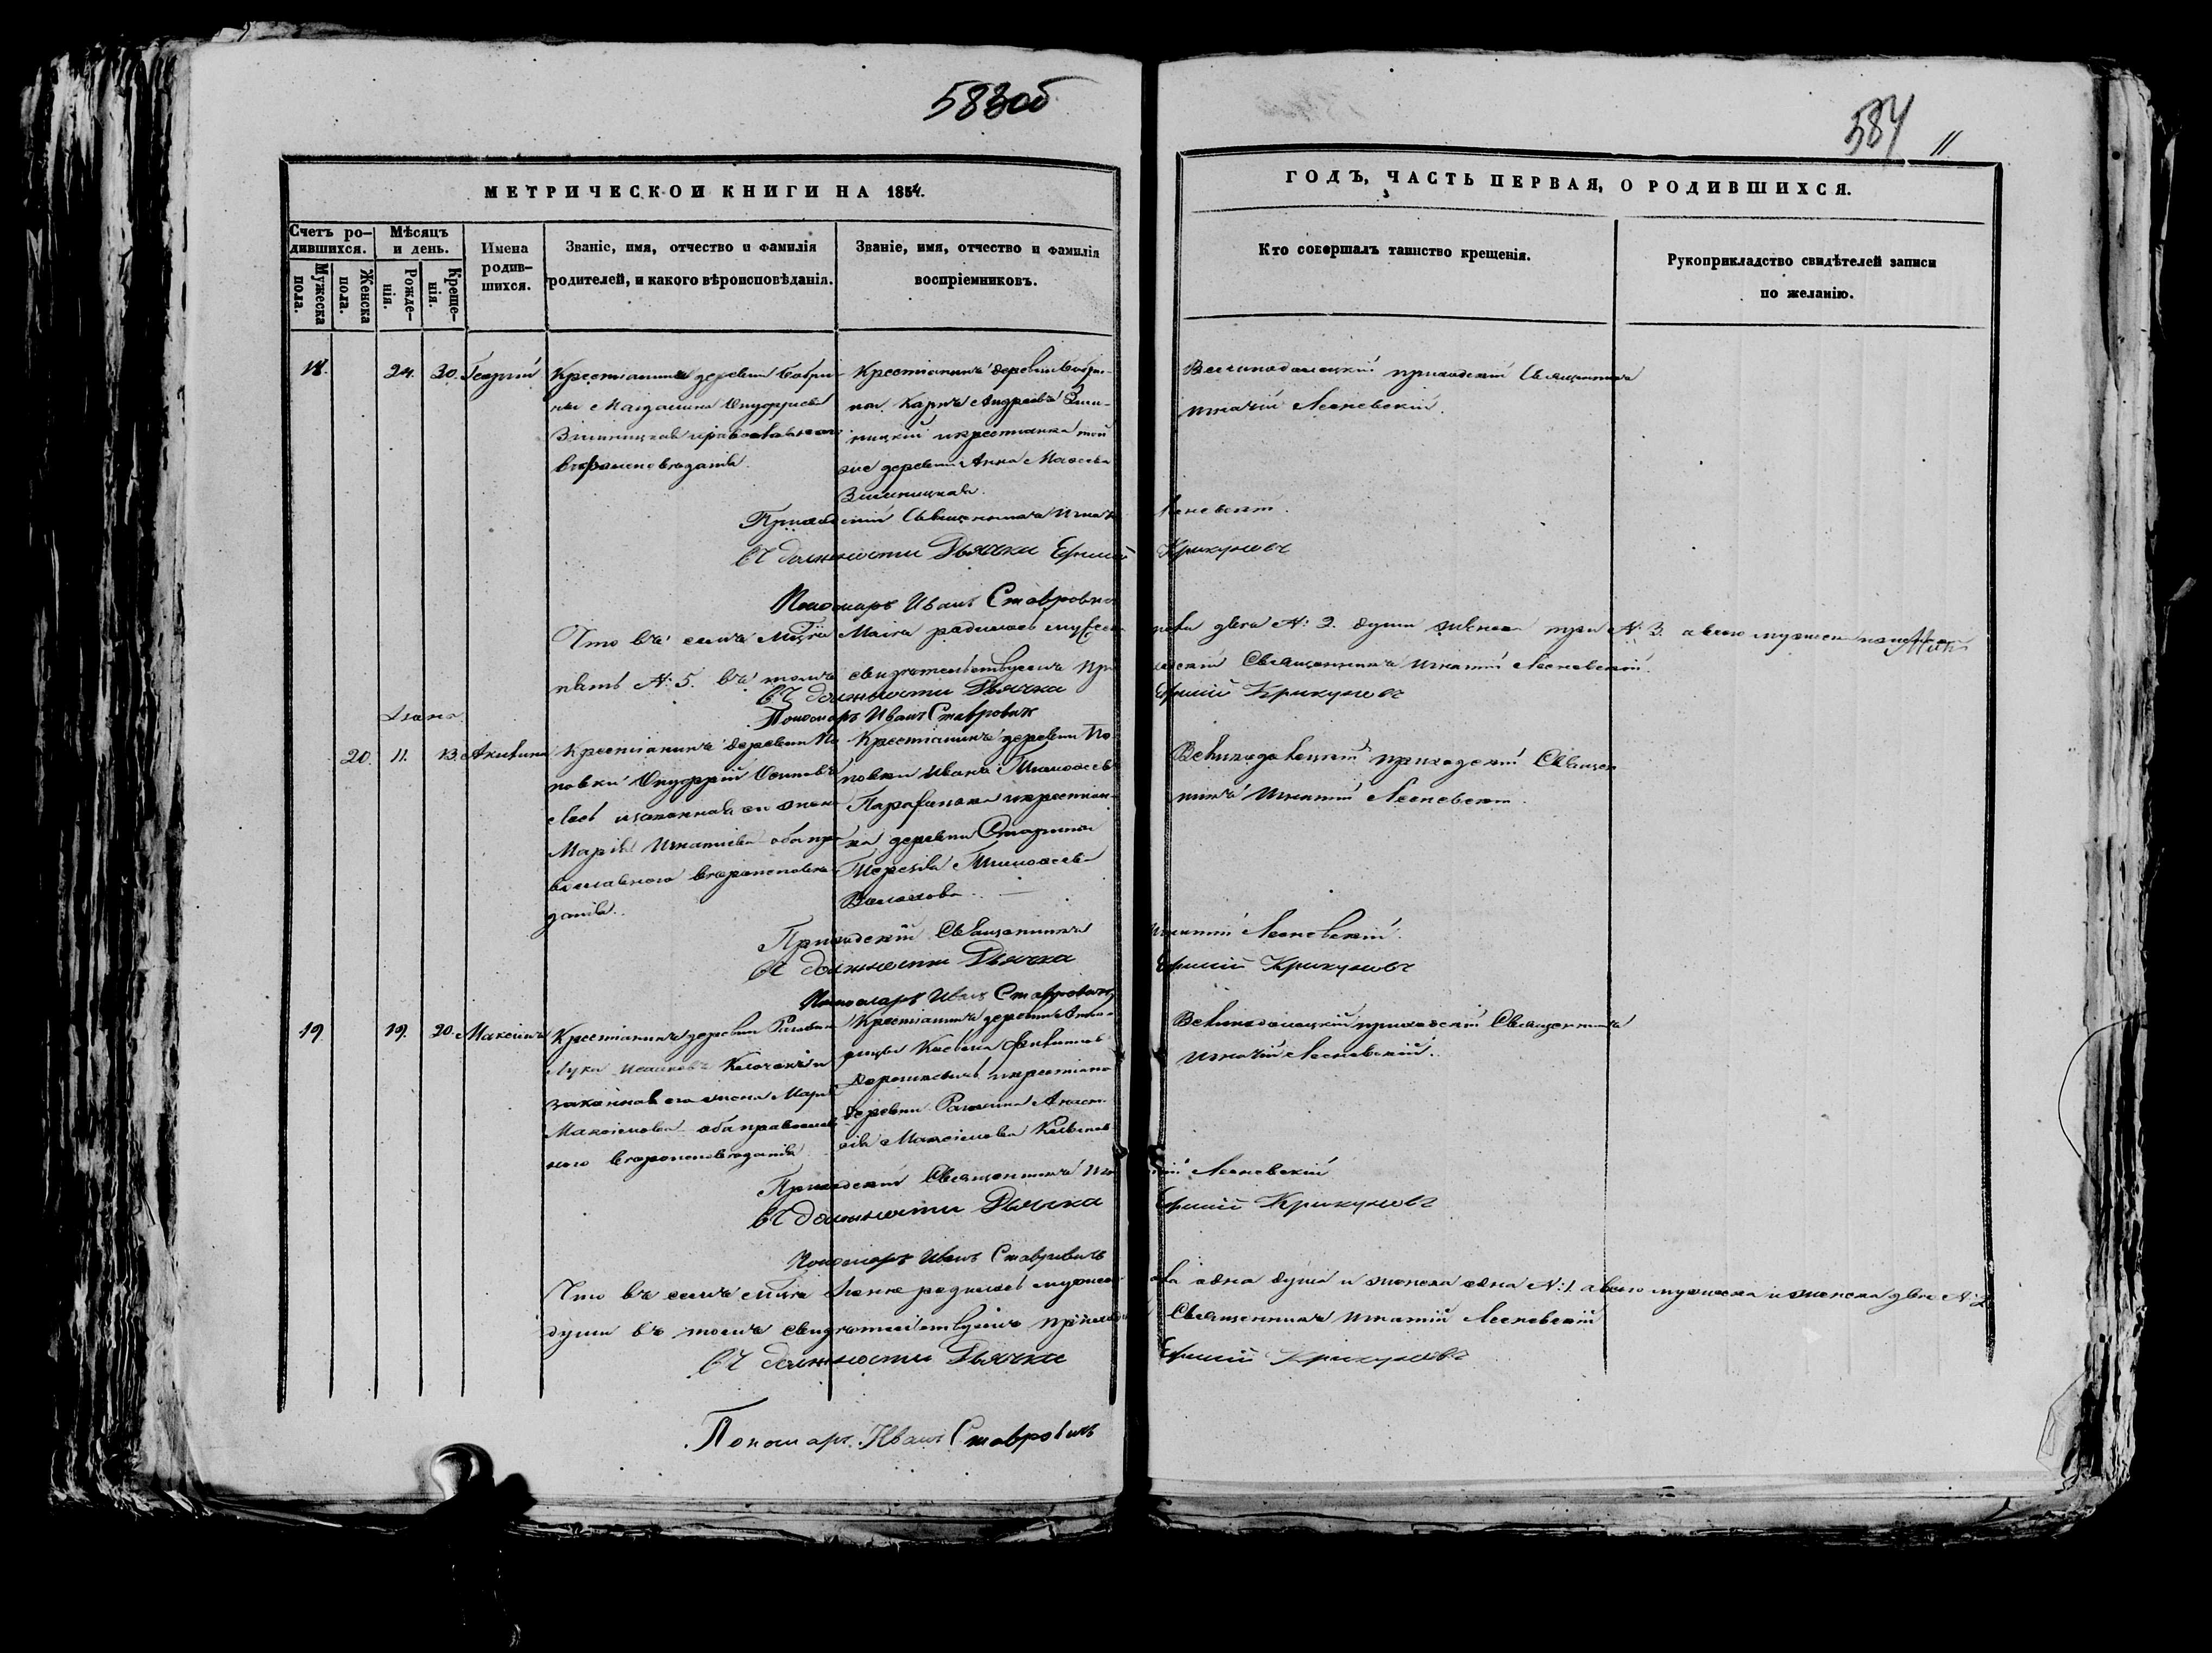 583об
584
11
МЕТРИЧЕСКОЙ КНИГИ НА 1854.
ГОДЪ, ЧАСТЬ ПЕРВАЯ, О РОДИВШИХСЯ.
Счетъ ро-
дившихся.
Мужеска
пола.
Женска
пола.
Мѣсяцъ
и день.
Рожде-
нія.
Креще-
нія.
Имена
родив-
шихся.
Званіе, имя, отчество и фамилія
родителей, и какого вѣроисповѣданія.
Званіе, имя, отчество и фамилія
воспріемниковъ.
Кто совершалъ таинство крещенія.
Рукоприкладство свидѣтелей записи
по желанію.
18. 24. 30. Георгій
Крестьянина деревни Бобри-
ны Магдалина Онуфриева
Зминицкая православнаго
вѣроисповѣданія.
Крестьянинъ деревни Бобри-
ны Карпъ Андреевъ Зми-
ницкій и крестьянка той
же деревни Анна
Зминицкая.
Великодолецкій приходскій Священникъ
Игнатій Лесневскій.
Приходскій Священникъ Игнатій Лесневскій.
Въ должности Дьячка Ефимій Крикуновъ
Пономарь Иванъ Ставровичъ
Что въ семъ мѣсяцѣ Маіа родилось мужеска пола два №: 2. души женска три №: 3. а всего мужеска и женска
пять №: 5. въ томъ свидѣтельствуемъ Приходскій Священникъ Игнатій Лесневскій.
Въ должности Дьячка Ефимій Крикуновъ
Пономарь Иванъ Ставровичъ
Іюня.
20. 11. 13. Акилина
Крестьянинъ деревни По-
повки Онуфрій Осиповъ
и законная его жена
Марія Игнатіева оба пра-
вославнаго вѣроисповѣ-
данія.
Крестьянинъ деревни По-
повки Иванъ Тимофеевъ
и крестьян-
ка деревни
Терезія Тимофеева
Великодолецкій приходскій Священ-
никъ Игнатій Лесневскій.
Приходскій Священникъ Игнатій Лесневскій.
Въ должности Дьячка Ефимій Крикуновъ
Пономарь Иванъ Ставровичъ
19. 19. 20. Максимъ
Крестьянинъ деревни
Лука и
законная его жена Марія
Максимова оба православ-
наго вѣроисповѣданія
Крестьянинъ деревни
и крестьянка
деревни Анаста-
сія Максимова
Великодолецкій приходскій Священникъ
Игнатій Лесневскій.
Приходскій Священникъ Игнатій Лесневскій
Въ должности Дьячка Ефимій Крикуновъ
Пономарь Иванъ Ставровичъ
Что въ семъ мѣсяцѣ Іюнѣ родилось мужеска пола одна душа и женска одна №: 1. а всего мужеска и женска двѣ №: 2
души въ томъ свидѣтельствуемъ приходскій Священникъ Игнатій Лесневскій
Въ должности Дьячка Ефимій Крикуновъ
Пономарь Иванъ Ставровичъ